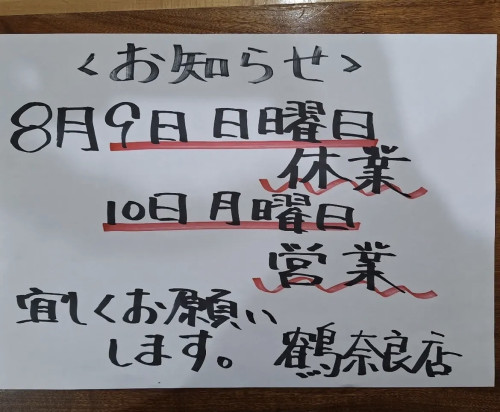 <お知らせ>
8月9日 日曜日
休業
10日月曜日
営業
宜しくお願い
します。 鶴奈良店